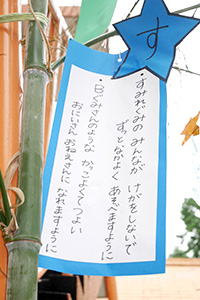 す
・すみれぐみの みんなが けがをしないで
ずっとなかよく あそべますように
・Bぐみさんのような かっこよくてつよい
おにいさん おねえさんに なれますように